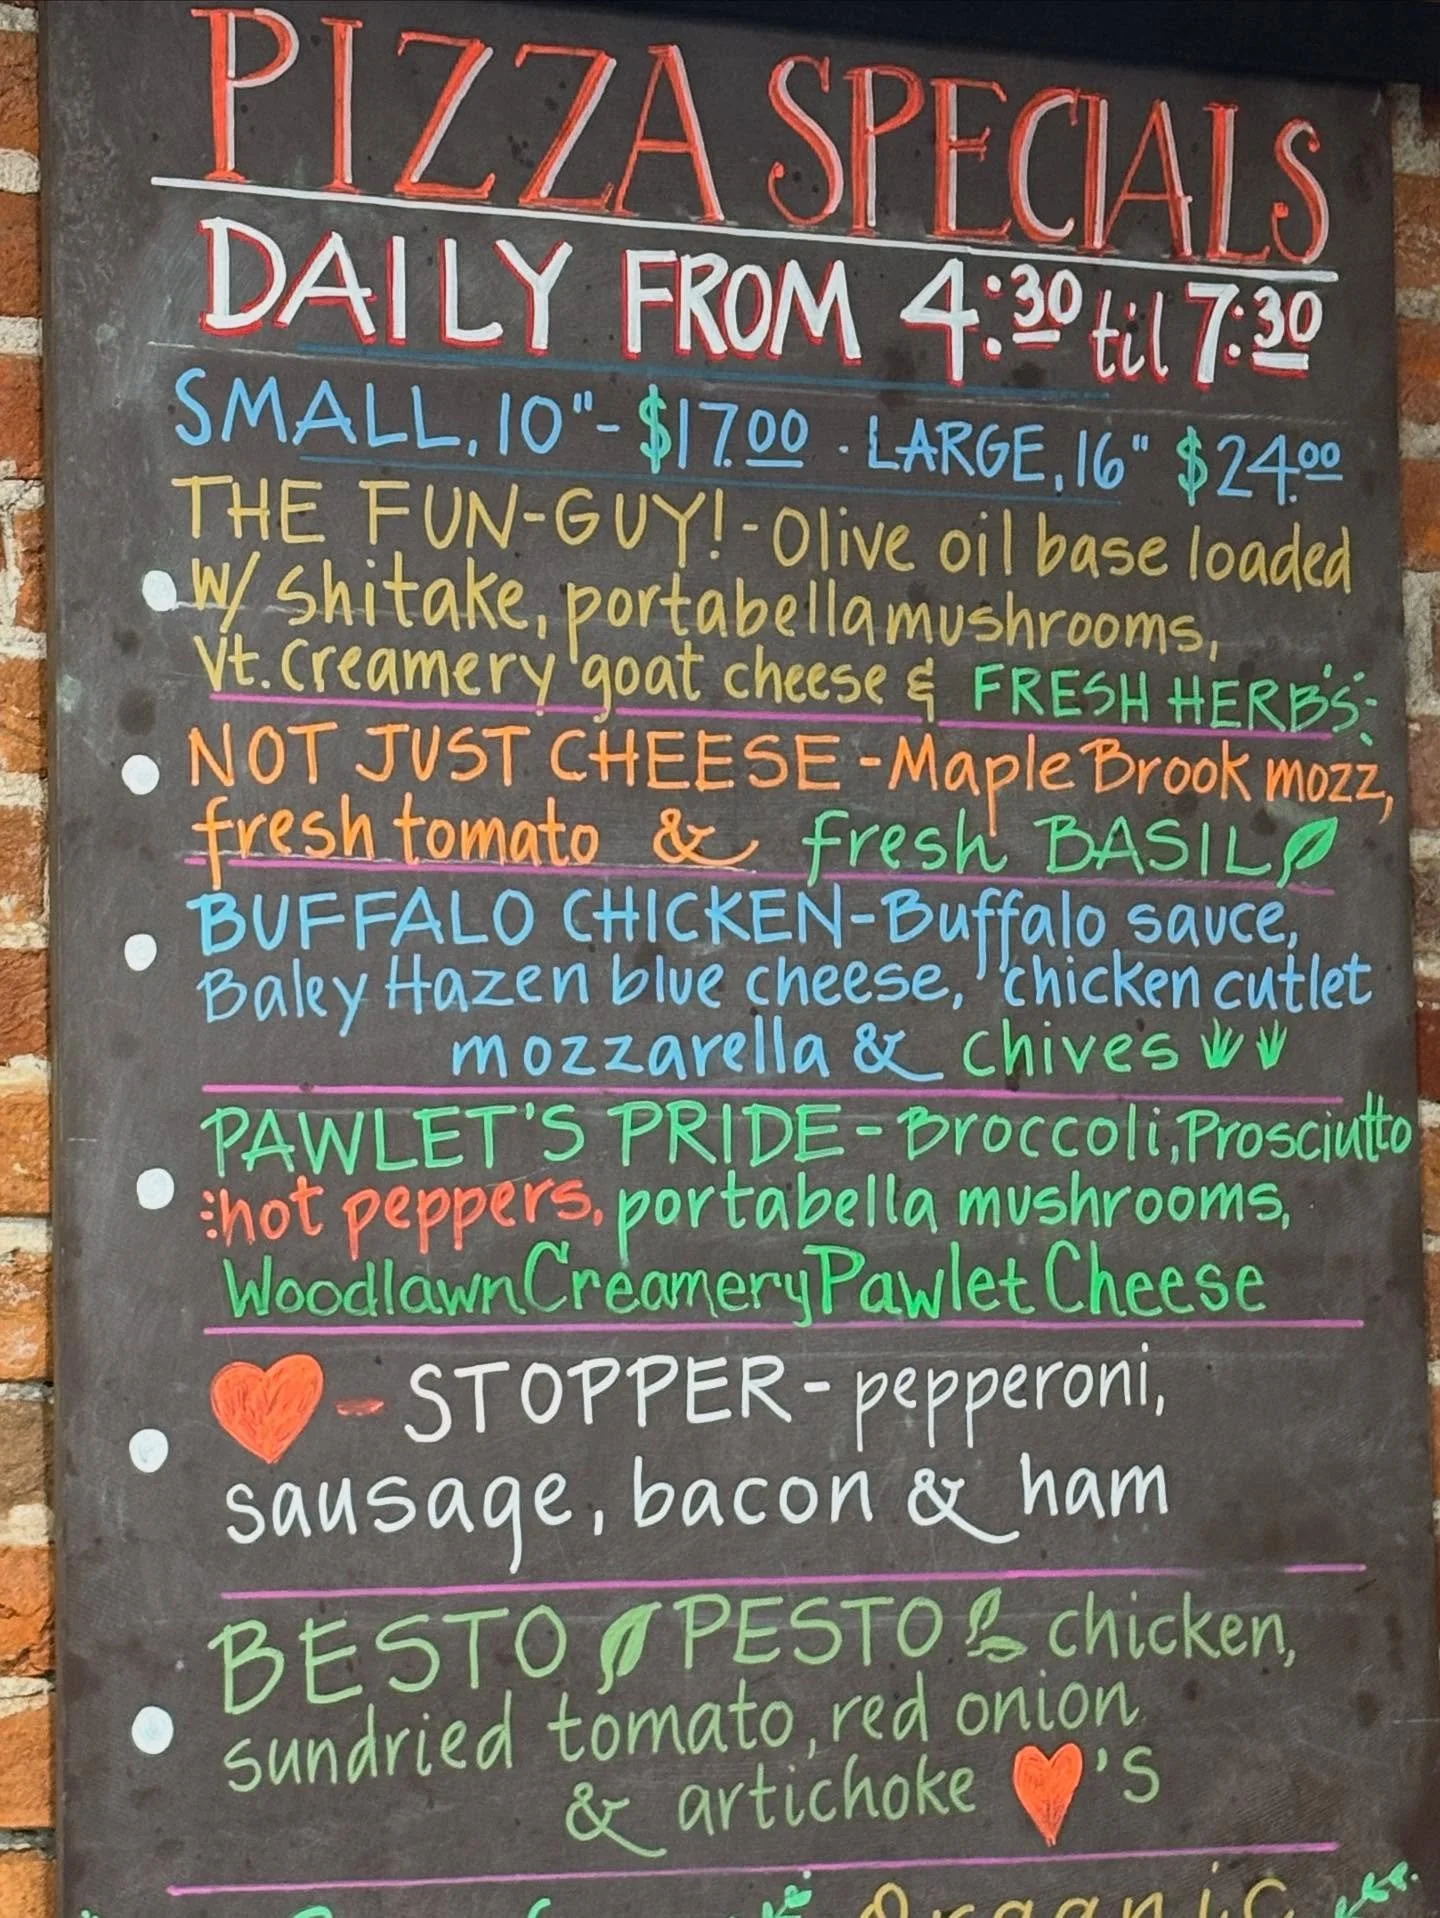 PIZZA SPECIALS
DAILY FROM 4:30 til 7:30
SMALL, 10"- $17.00 · LARGE, 16" $24.00
THE FUN-GUY! - Olive oil base loaded
w/ Shitake, portabella mushrooms,
Vt. Creamery goat cheese & FRESH HERBS
NOT JUST CHEESE - Maple Brook mozz,
fresh tomato & fresh BASIL
BUFFALO CHICKEN - Buffalo sauce,
Baley Hazen blue cheese, chicken cutlet
mozzarella & chives
PAWLET'S PRIDE - Broccoli, Prosciutto
hot peppers, portabella mushrooms,
Woodlawn Creamery Pawlet Cheese
- STOPPER - pepperoni,
sausage, bacon & ham
BESTO PESTO chicken,
sundried tomato, red onion
& artichoke 'S
Organic